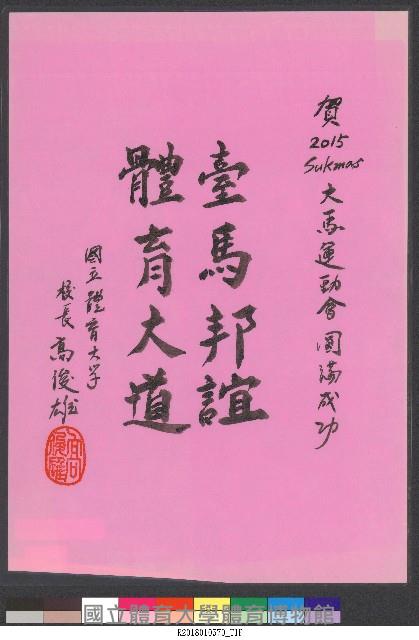 賀
2015
Sukmas
大馬運動會圓滿成功
臺馬邦誼
體育大道
國立體育大学
校長高俊雄
國立體育大學體育博物館